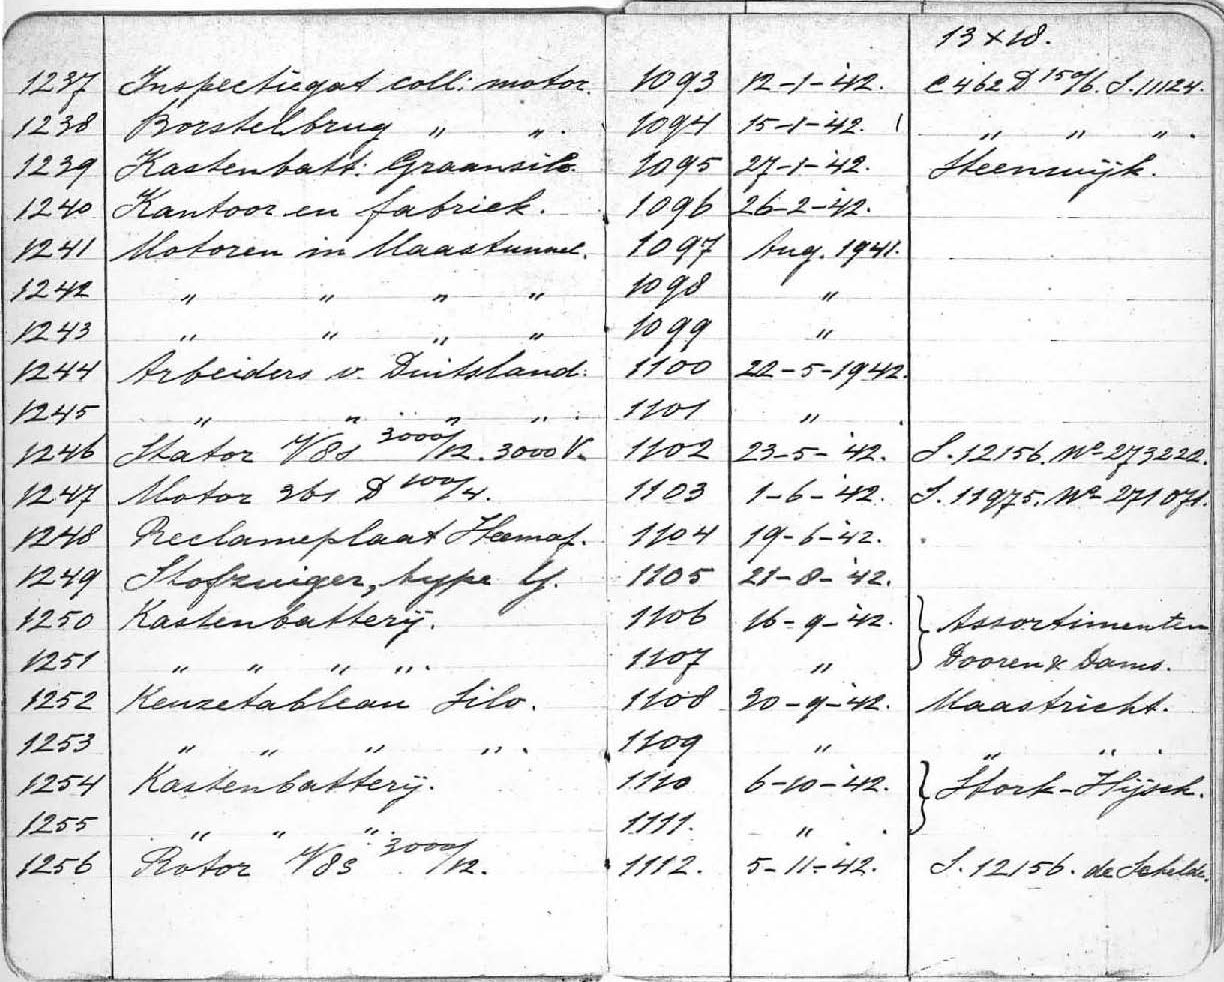 13 x 18.
1237 Inspectiegat coll: motor. 1093 12-1-'42. C 462 D 150/6. S. 11124.
1238 Borstelbrug " ". 1094 15-1-'42. " " ".
1239 Kastenbatt: Graansilo. 1095 27-1-'42. Steenwijk.
1240 Kantoor en fabriek. 1096 26-2-'42.
1241 Motoren in Maastunnel. 1097 Aug. 1941.
1242 " " " " 1098 "
1243 " " " " 1099 "
1244 Arbeiders v. Duitsland. 1100 22-5-1942.
1245 " " " ". 1101 ".
1246 Stator 3000/12. 3000 V. 1102 23-5-'42. S. 12156. No 273222.
1247 Motor 361 D 100/4. 1103 1-6-'42. S. 11975. No 271071.
1248 Reclameplaat Heemaf. 1104 19-6-'42.
1249 Stofzuiger, type 1105 21-8-'42.
1250 Kastenbatterij. 1106 16-9-'42. } Assortimenten
1251 " " " ". 1107 " Dooren & Dams.
1252 Keuzetableau Silo. 1108 30-9-'42. Maastricht.
1253 " " " ". 1109 " " ".
1254 Kastenbatterij. 1110 6-10-'42. } Stork-Hijsch.
1255 " " ". 1111. ".
1256 Rotor 3000/12. 1112. 5-11-'42. S. 12156. de Schelde.